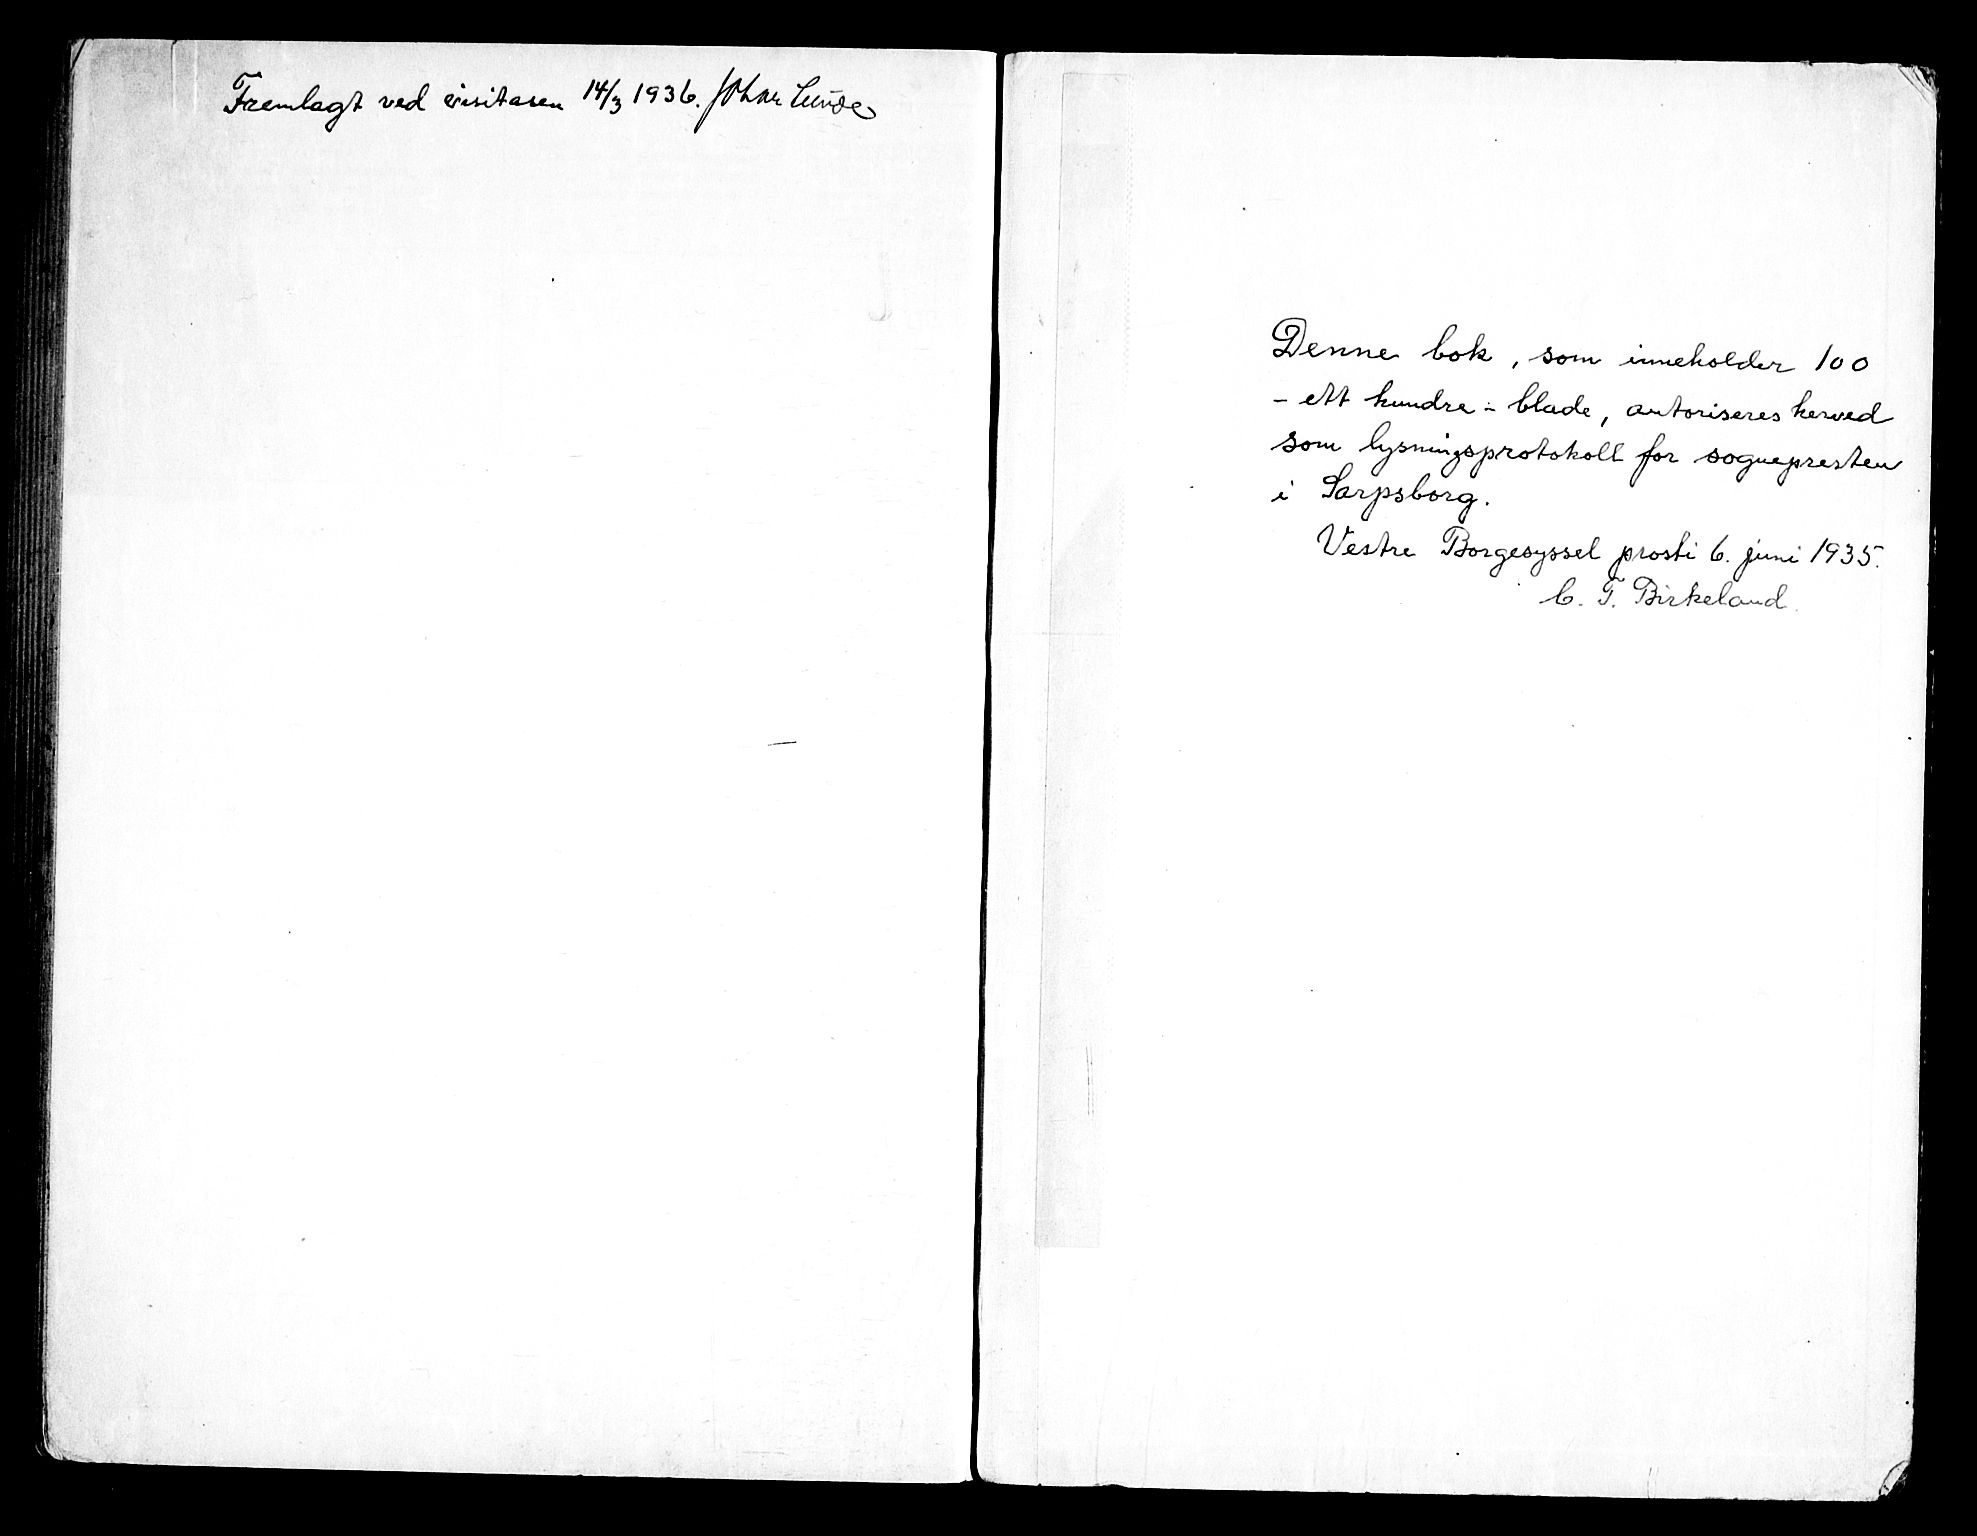 Fremlagt ved visitasen 14/3 1936. Johan Lunde
Denne bok, som inneholder 100
- ett hundre - blade, autoriseres herved
som lysningsprotokoll for sognepresten
i Sarpsborg.
Vestre Borgesyssel prosti 6. juni 1935.
C. F. Birkeland.